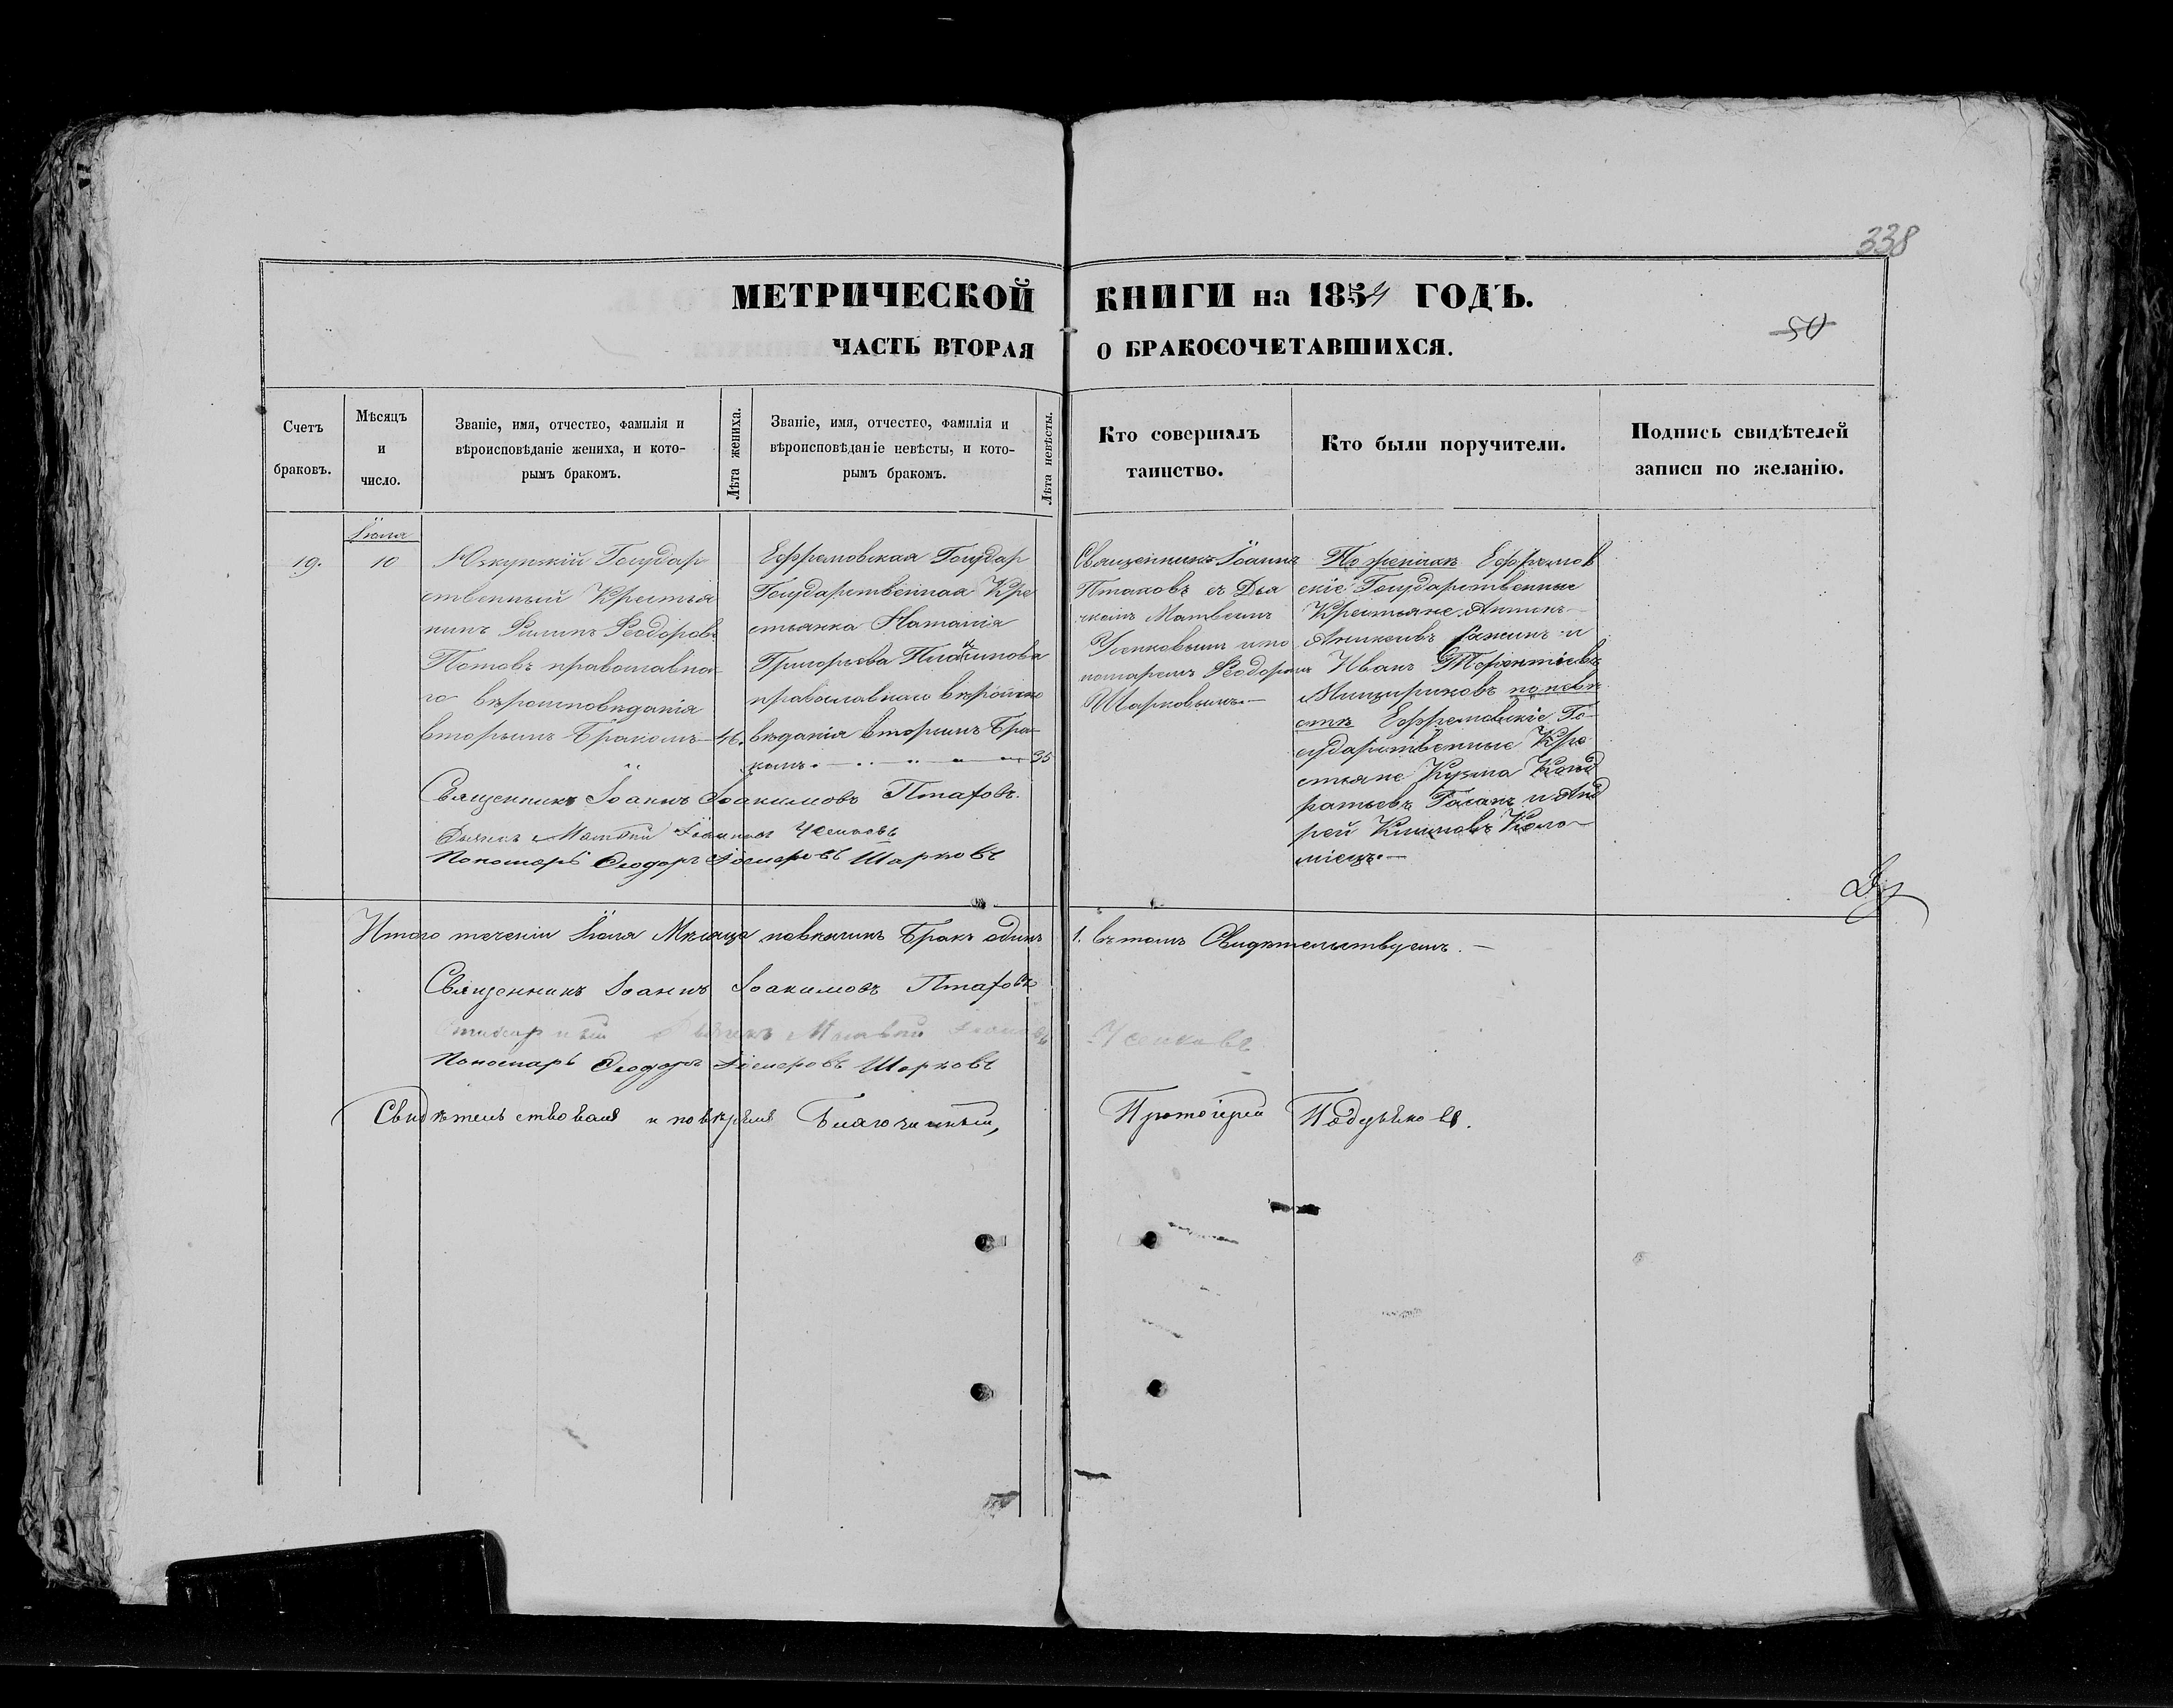 338
МЕТРИЧЕСКОЙ КНИГИ на 1854 ГОДЪ.
50
ЧАСТЬ ВТОРАЯ О БРАКОСОЧЕТАВШИХСЯ.
Счетъ
браковъ.
Мѣсяцъ
и
число.
Званіе, имя, отчество, фамилія и
вѣроисповѣданіе жениха, и кото-
рымъ бракомъ.
Лѣта жениха.
Званіе, имя, отчество, фамилія и
вѣроисповѣданіе невѣсты, и кото-
рымъ бракомъ.
Лѣта невѣсты.
Кто совершалъ
таинство.
Кто были поручители.
Подпись свидѣтелей
записи по желанію.
Іюля
19.
10
Государ
ственный Крестья
нинъ Филипъ Феодоровъ
Потовъ православна
го вѣроисповѣданія
вторымъ Бракомъ
46.
Ефремовская Государ
Государственная Кре
стьянка Наталія
Григорьева
православнаго вѣроиспо
вѣданія вторымъ Бра
комъ.
35
Священникъ Іоаннъ
Птаховъ съ Дья
чкомъ Матвеемъ
Усенковымъ и по
номаремъ Феодоромъ
Шарковымъ.
По женихѣ Ефремов
скіе Государственные
Крестьяне Антонъ
Аникеевъ и
Иванъ Терентіевъ
по невѣ
стѣ Ефремовскіе Го
сударственные Кре
стьяне Кузма Конд
ратьевъ Гасанъ и Анд
рей Климовъ Коло
міецъ.
Священникъ Іоаннъ Іоакимовъ Птаховъ.
Дьячекъ Матвѣй Іоанновъ Усенковъ
Пономарь Феодоръ Шарковъ
Итого теченіи Іюля Мѣсяца повѣнчанъ Бракъ одинъ 1. въ томъ Свидѣтельствуемъ.
Священникъ Іоаннъ Іоакимовъ Птаховъ
Стихарный Дьячекъ Матвѣй Іоанновъ Усенковъ
Пономарь Феодоръ Шарковъ
Свидѣтельствовалъ и повѣрялъ Благочинный, Протоіерей